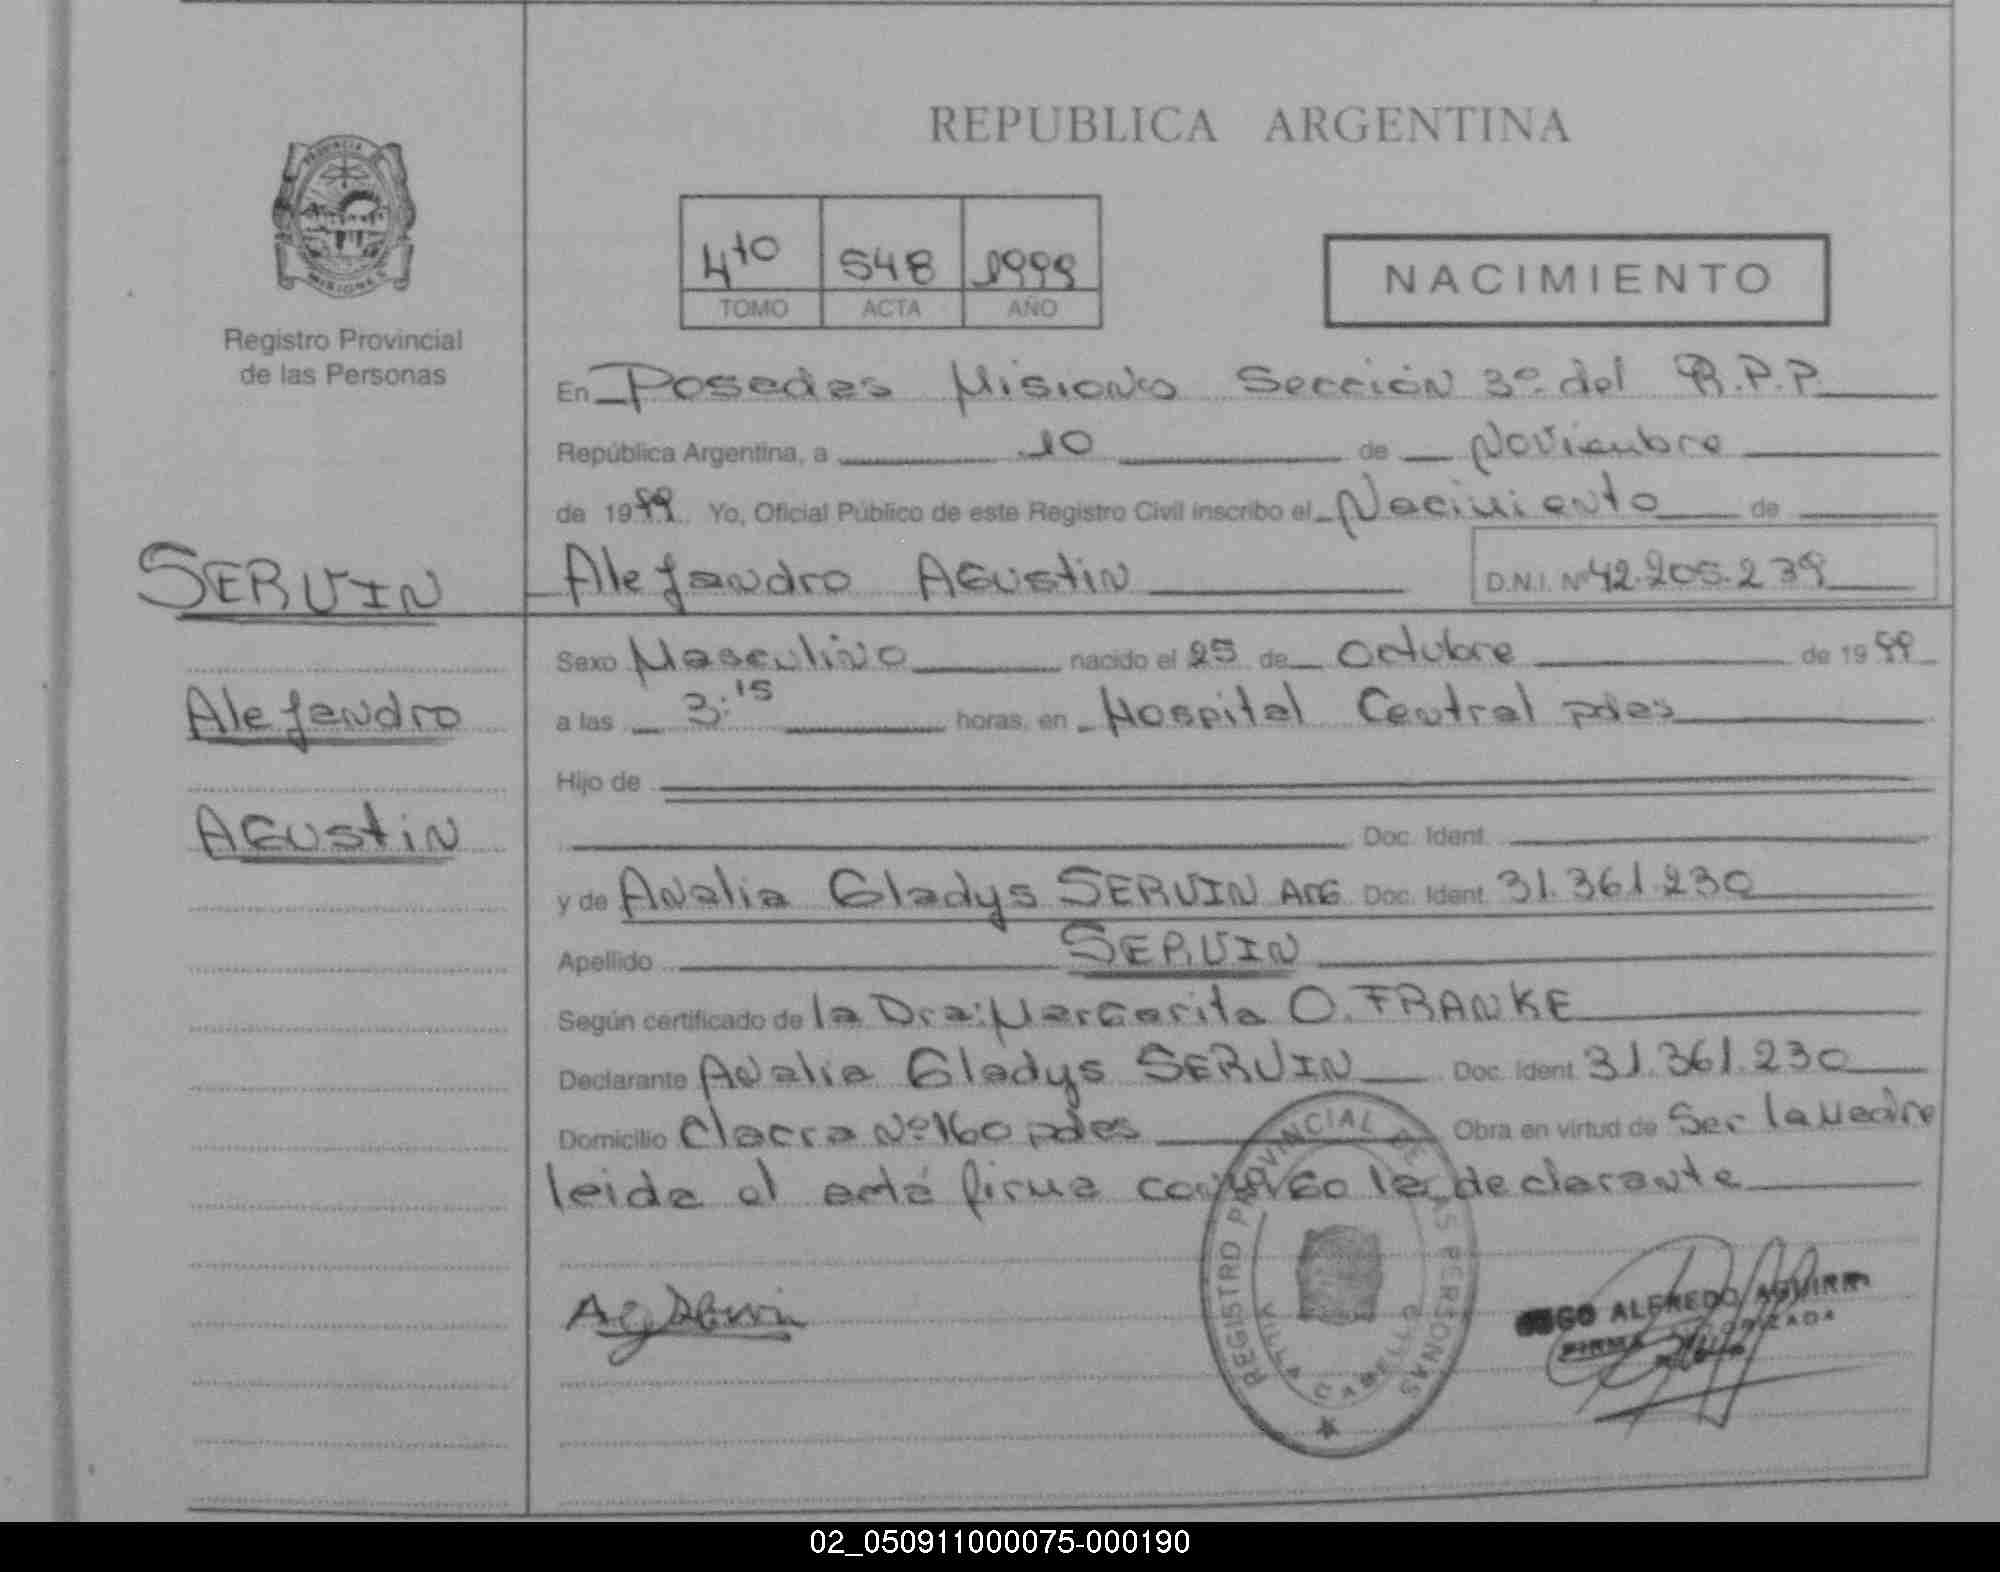 REPUBLICA ARGENTINA
PROVINCIA DE
MISIONES
Registro Provincial
de las Personas
4to 548 1999
TOMO ACTA AÑO
NACIMIENTO
En Posadas Misiones Sección 3º del R.P.P.
República Argentina, a 10 de Noviembre
de 1999 Yo, Oficial Público de este Registro Civil inscribo el Nacimiento de
SERVIN
Alejandro AGustin D.N.I. Nº 42.205.239
Sexo Masculino nacido el 25 de Octubre de 1999
Alejandro
a las 3:15 horas, en Hospital Central pdas
Hijo de
AGustin
Doc. Ident.
y de Analia Gladys SERVIN ArG Doc. Ident. 31.361.230
Apellido SERVIN
Según certificado de la Dra: Margarita O. FRANKE
Declarante Analia Gladys SERVIN Doc. Ident. 31.361.230
Domicilio Chacra Nº 160 pdas Obra en virtud de Ser la Madre
leida el acta firma conmigo la declarante
REGISTRO PROVINCIAL DE LAS PERSONAS
VILLA CABELLO
ALFREDO AGUIRRE
FIRMA AUTORIZADA
02_050911000075-000190